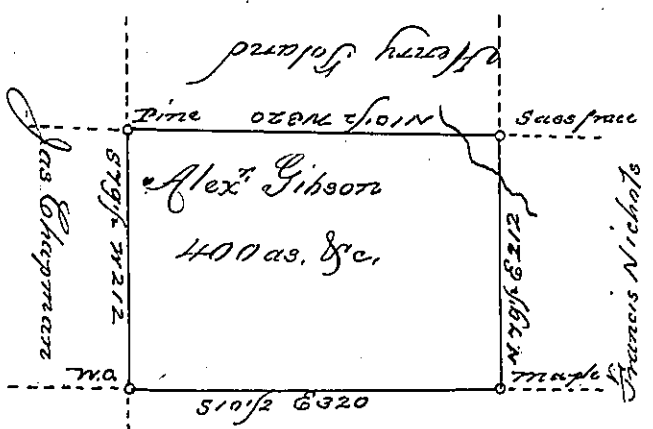 Henry Toland
Pine N10½ W320 Sassfrace
Jas Chapman
S79½ W212
Alexr. Gibson
400 as. &c.
N79½ E212
Francis Nichols
W.O. S10½ E320 Maple